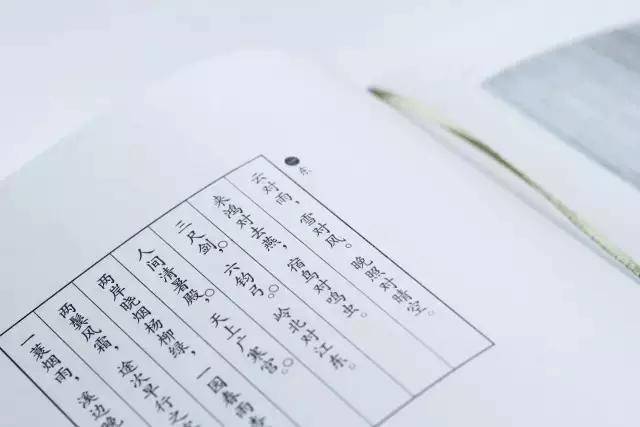 一 东
云对雨，雪对风。晚照对晴空。
来鸿对去燕，宿鸟对鸣虫。
三尺剑，○六钧弓。○岭北对江东。
人间清暑殿，○天上广寒宫。○
两岸晓烟杨柳绿，一园春雨
两鬓风霜，途次早行之
一蓑烟雨，溪边晚